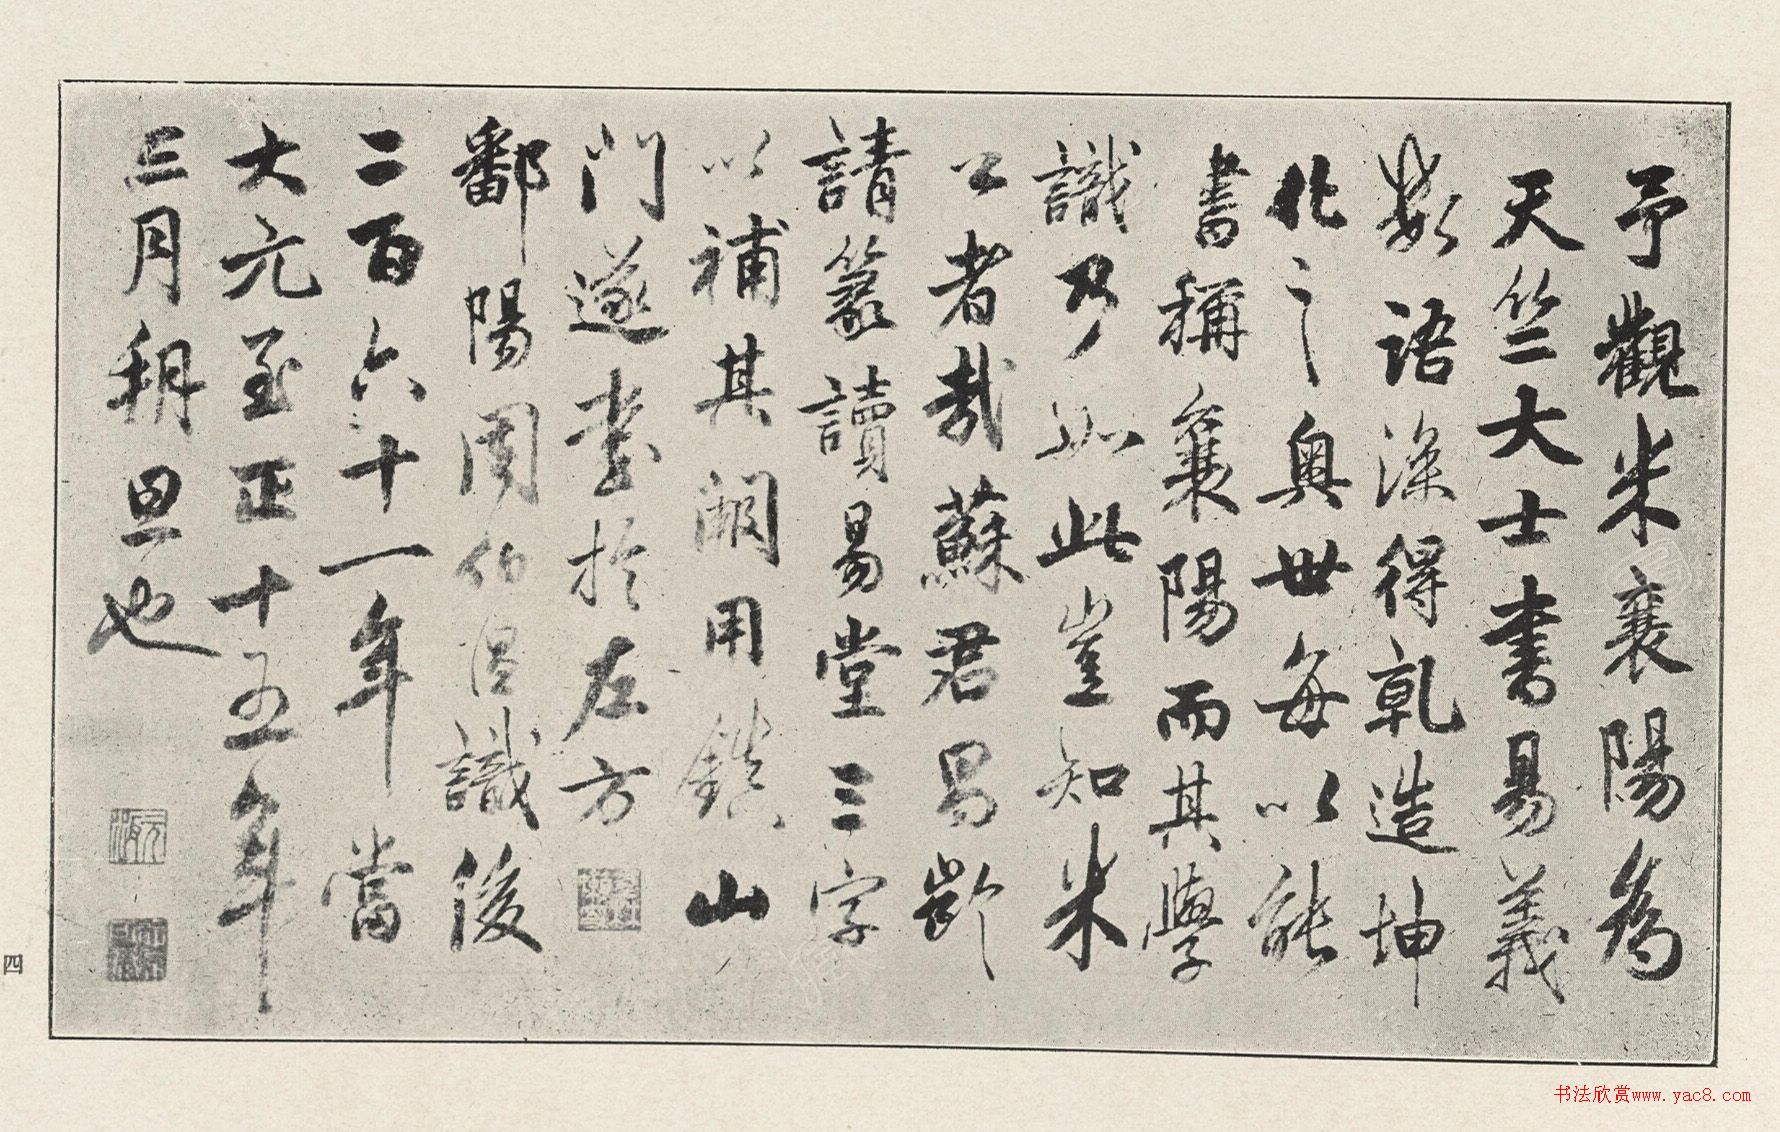 予觀米襄陽為
天竺大士書易義
數語深得乾造坤
化之奥世每以能
書稱襄陽而其學
識乃如此豈知米
公者哉蘇君昌齡
請篆讀易堂三字
以補其闕用鎮山
門遂書於左方
鄱陽周伯温識後
二百六十一年當
大元至正十五年
三月朔旦也
四
书法欣赏www.yac8.com